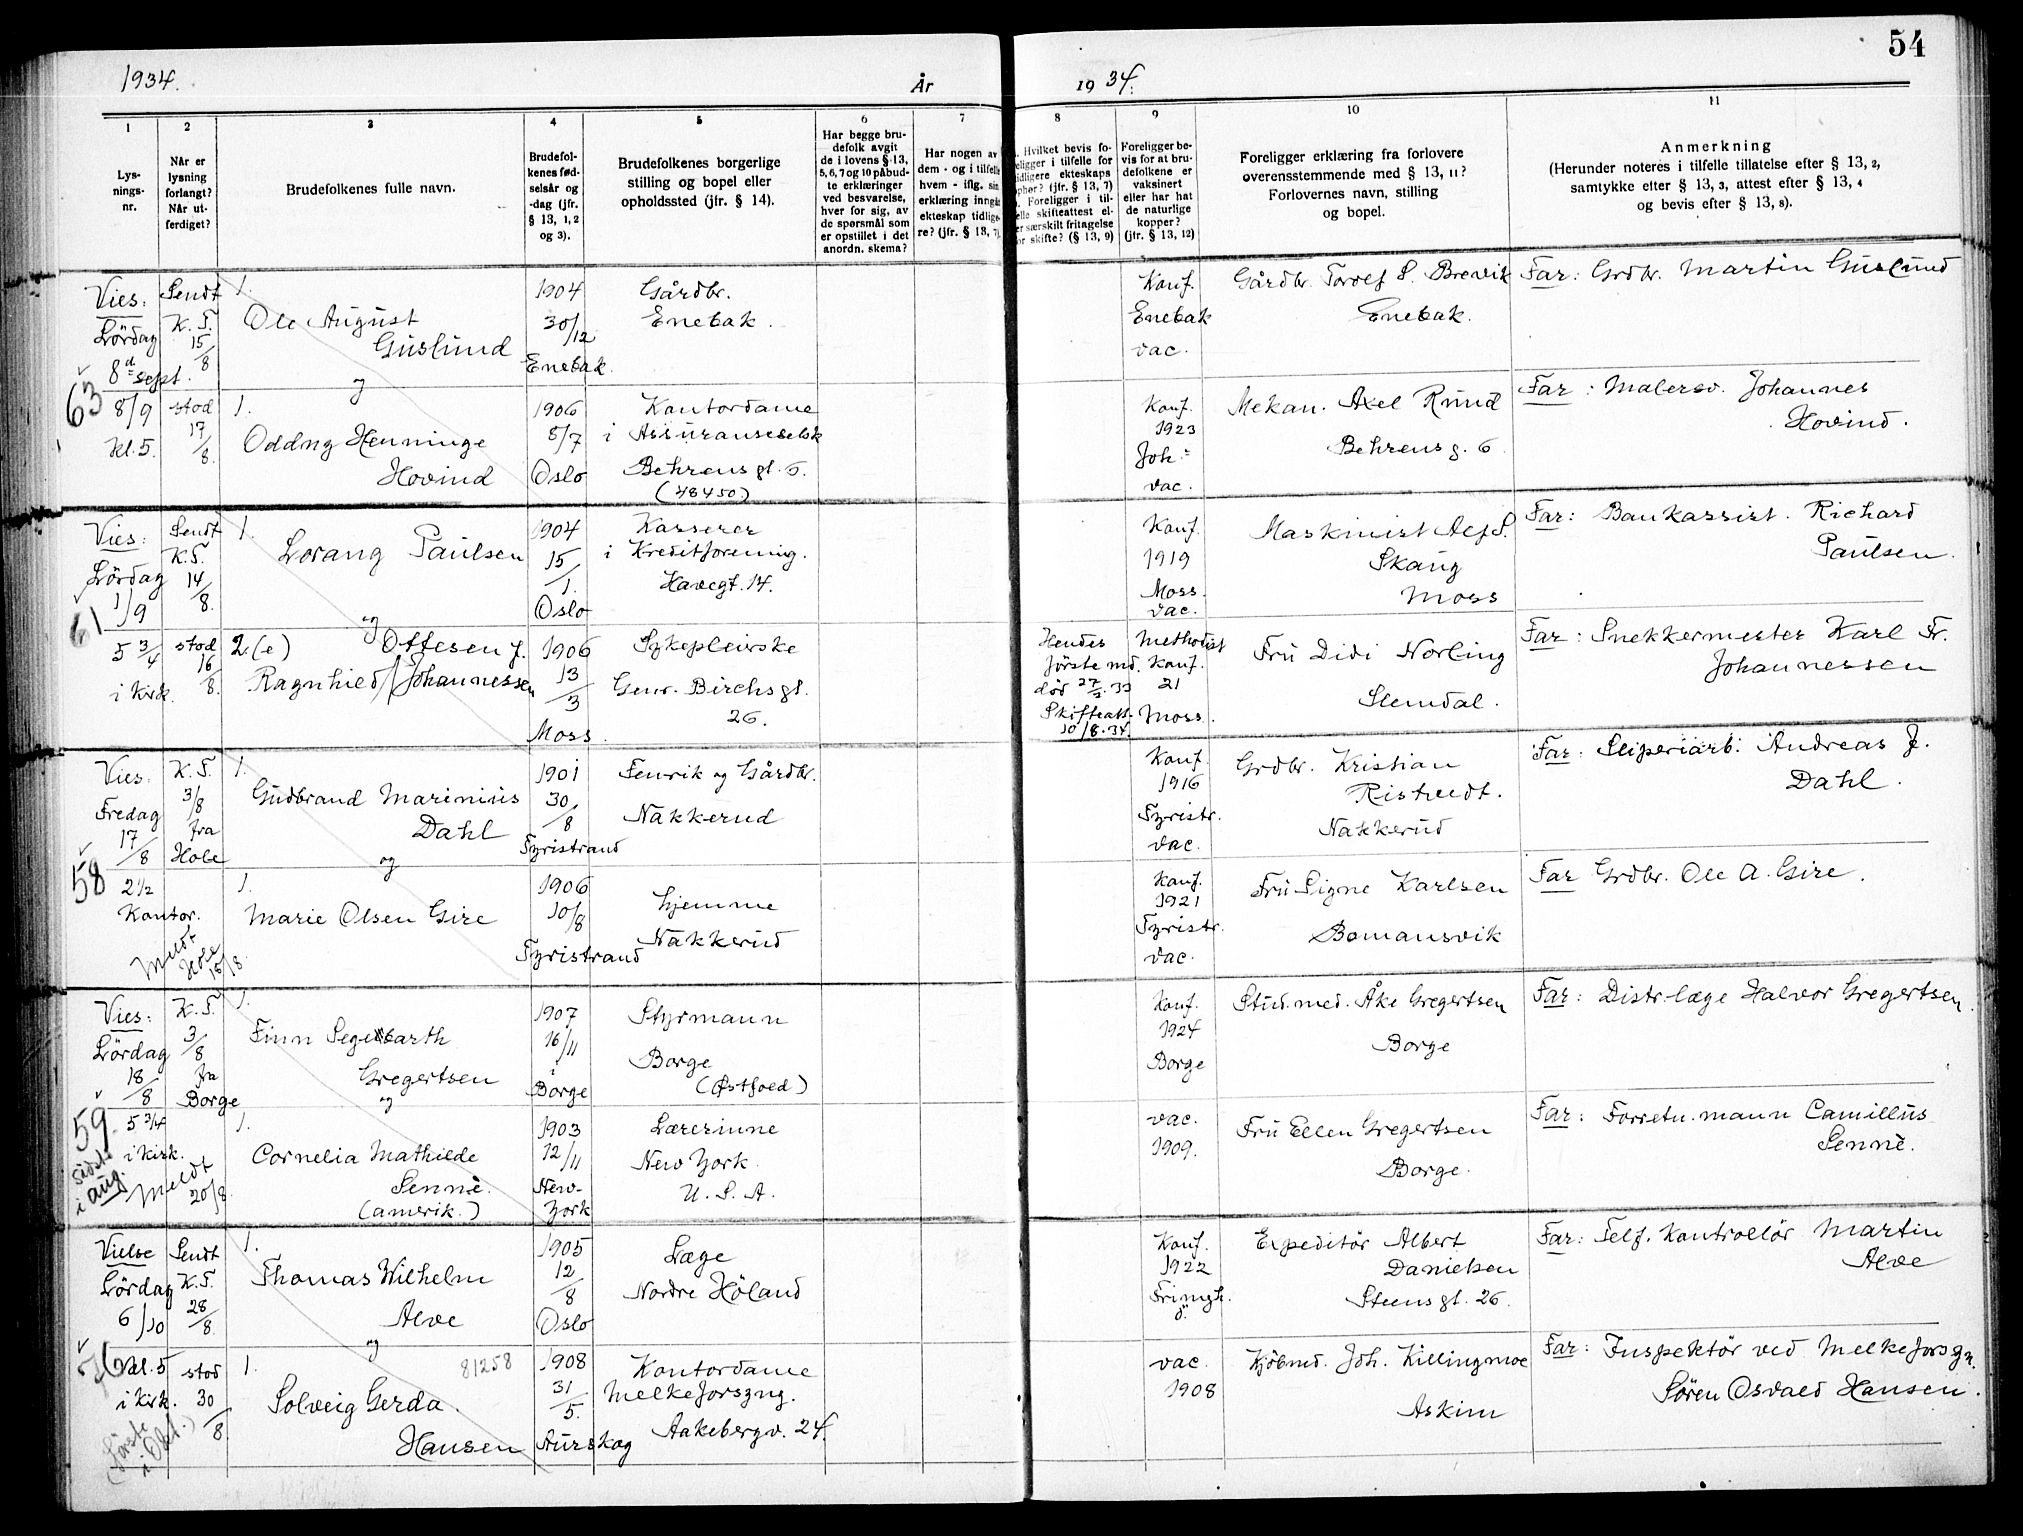 54
1934.
År
19 34.
1
Lys-
nings-
nr.
2
Når er
lysning
forlangt?
Når ut-
ferdiget?
3
Brudefolkenes fulle navn.
4
Brudefol-
kenes fød-
selsår og
-dag (jfr.
§ 13, 1, 2
og 3).
5
Brudefolkenes borgerlige
stilling og bopel eller
opholdssted (jfr. § 14).
6
Har begge bru-
defolk avgit
de i lovens § 13,
5, 6, 7 og 10 påbud-
te erklæringer
ved besvarelse,
hver for sig, av
de spørsmål som
er opstillet i det
anordn. skema?
7
Har nogen av
dem - og i tilfelle
hvem - iflg. sin
erklæring inngåt
ekteskap tidlige-
re? (jfr. § 13, 7)
8
Hvilket bevis fo-
religger i tilfelle for
tidligere ekteskaps
ophør? (jfr. § 13, 7)
Foreligger i til-
felle skifteattest el-
er særskilt fritagelse
for skifte? (§ 13, 9)
9
Foreligger be-
vis for at bru-
defolkene er
vaksinert
eller har hat
de naturlige
kopper?
(jfr. § 13, 12)
10
Foreligger erklæring fra forlovere
overensstemmende med § 13, 11?
Forlovernes navn, stilling
og bopel.
11
Anmerkning
(Herunder noteres i tilfelle tillatelse efter § 13, 2,
samtykke efter § 13, 3, attest efter § 13, 4
og bevis efter § 13, 8).
63
Vies:
Lördag
8d sept.
8/9
Kl. 5.
Sendt
K. T.
15/8
stod
17/8.
1.
Ole August
Guslund
og
1904
30/12
Enebak.
Gårdbr.
Enebak.
Konf.
Enebak
vac.
Gårdbr. Torolf S. Brevik
Enebak.
Far: Grdbr. Martin Guslund
1.
Oddny Henninge
Hovind
1906
8/7
Oslo
Kontordame
i Assuranseselsk
Behrens gt. 6.
(48450)
Konf.
1923
Joh:
vac.
Mekan. Axel Ruud
Behrens g. 6
Far: Malersv. Johannes
Hovind.
61
Vies:
Lördag
1/9
5 3/4
i kirk.
Sendt
K. T.
14/8.
stod
16/8.
1.
Lorang Paulsen
og
1904
15/1.
Oslo
Kasserer
i Kreditforening.
Havegt. 14.
Konf.
1919
Moss.
vac.
Maskinist Alf S.
Skaug
Moss
Far: Bankassist. Richard
Paulsen.
2 (e) Ottesen f.
Ragnhild Johannessen
1906
13/3
Moss.
Sykepleirske
Genr. Birchs gt.
26.
Hendes
förste md.
död 27/2.33
Skifteatt.
10/8.34.
Methodist
Konf.
21
Moss.
Fru Didi Norling
Slemdal.
Far: Snekkermester Karl Fr.
Johannessen
58
Vies.
Fredag
17/8
2 1/2
Kontor.
Meldt
Hole
18/8
K. T.
3/8
fra
Hole
1.
Gudbrand Marinius
Dahl
og
1901
30/8
Tyristrand
Fenrik og Gårdbr.
Nakkerud
Konf.
1916
Tyristr.
vac.
Grdbr. Kristian
Ristvedt.
Nakkerud
Far: Sliperiarb. Andreas J.
Dahl.
1.
Marie Olsen Gire
1906
10/8
Tyristrand
hjemme
Nakkerud
Konf.
1921
Tyristr.
vac.
Fru Signe Karlsen
Bomansvik
Far Grdbr. Ole A. Gire.
59.
Vies:
Lördag
18/8
5 3/4
i kirk.
sidste
i aug.
Meldt
20/8.
K. T.
3/8
fra
Borge
1.
Finn Segelbarth
Gregertsen
og
1907
16/11
i
Borge
Styrmann
Borge
(Østfold)
Konf.
1924
Borge
Stud. med. Åke Gregertsen
Borge
Far: Distr.læge Halvor Gregertsen.
1.
Cornelia Mathilde
Sennè.
(amerik.)
1903
12/11
New-
York
Lærerinne
New York.
U. S. A.
vac.
1909.
Fru Ellen Gregertsen
Borge.
Far: Forretn.mann Camillus
Sennè.
Vielse
Lördag
6/10
Kl. 5
i kirk.
(förste
i Okt.)
Sendt
K. T.
28/8.
stod
30/8
1.
Thomas Wilhelm
Alve
og
1905
12/8
Oslo
Læge
Nordre Höland
Konf.
1922
Frimgh.
ö.
Expeditör Albert
Danielsen
Steens gt. 26.
Far: Telf. kontrollör Martin
Alve
1. 81258
Solveig Gerda.
Hansen
1908
31/5.
Aurskog
Kontordame
Melkeforsyng.
Aakebergv. 24.
vac.
1908
Kjöbmd. Joh. Killingmoe
Askim
Far: Inspektör ved Melkeforsgn.
Sören Osvald Hansen.